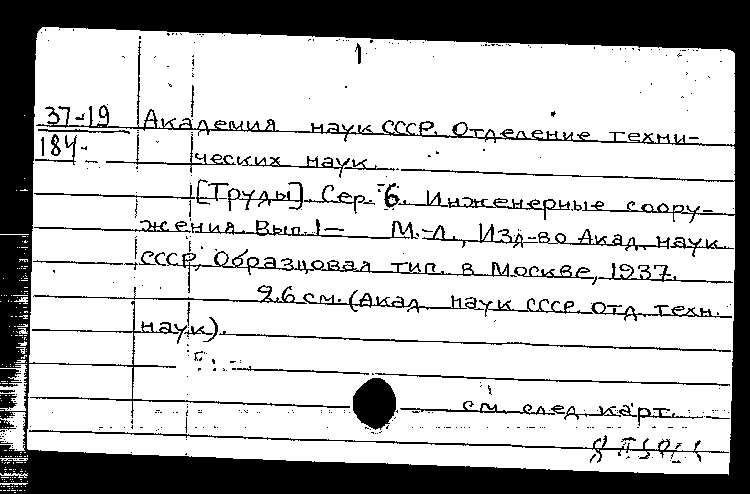 1
37-19 Академия наук СССР. Отделение техни-
184- ческих наук.
[Труды]. Сер. 6. Инженерные соору-
жения. Вып. 1— М.-Л., Изд-во Акад. наук
СССР, Образцовая тип. в Москве, 1937.
26 см. (Акад. наук СССР. Отд. техн.
наук).
см. след. карт.